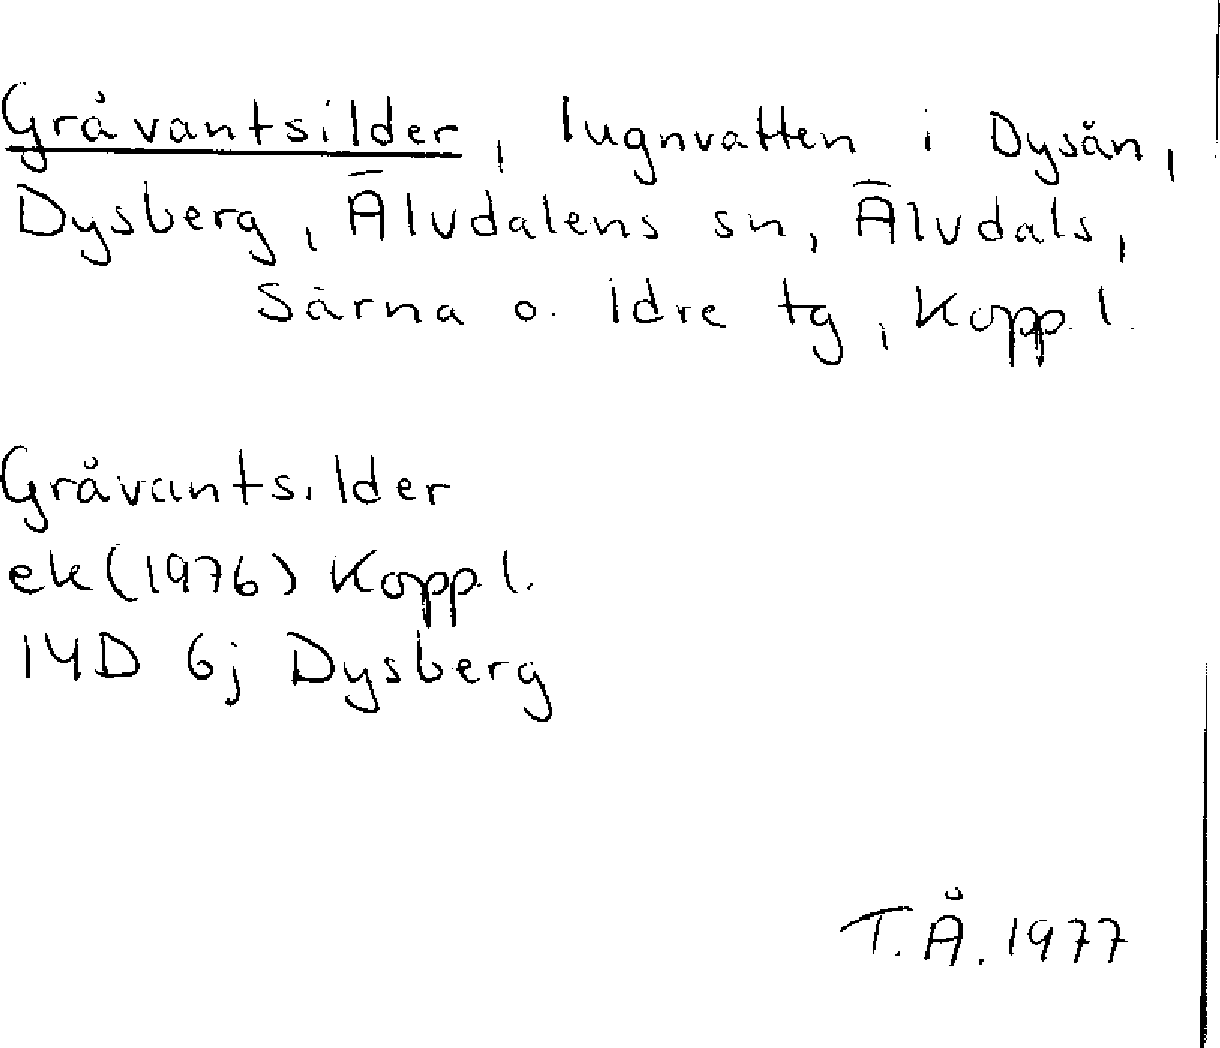 Gråvantsilder, lugnvatten i Dysån,
Dysberg, Älvdalens sn, Älvdals,
Särna o. Idre tg, Kopp. l.
Gråvantsilder
ek (1976) Kopp l.
14D 6j Dysberg
T.Å. 1977